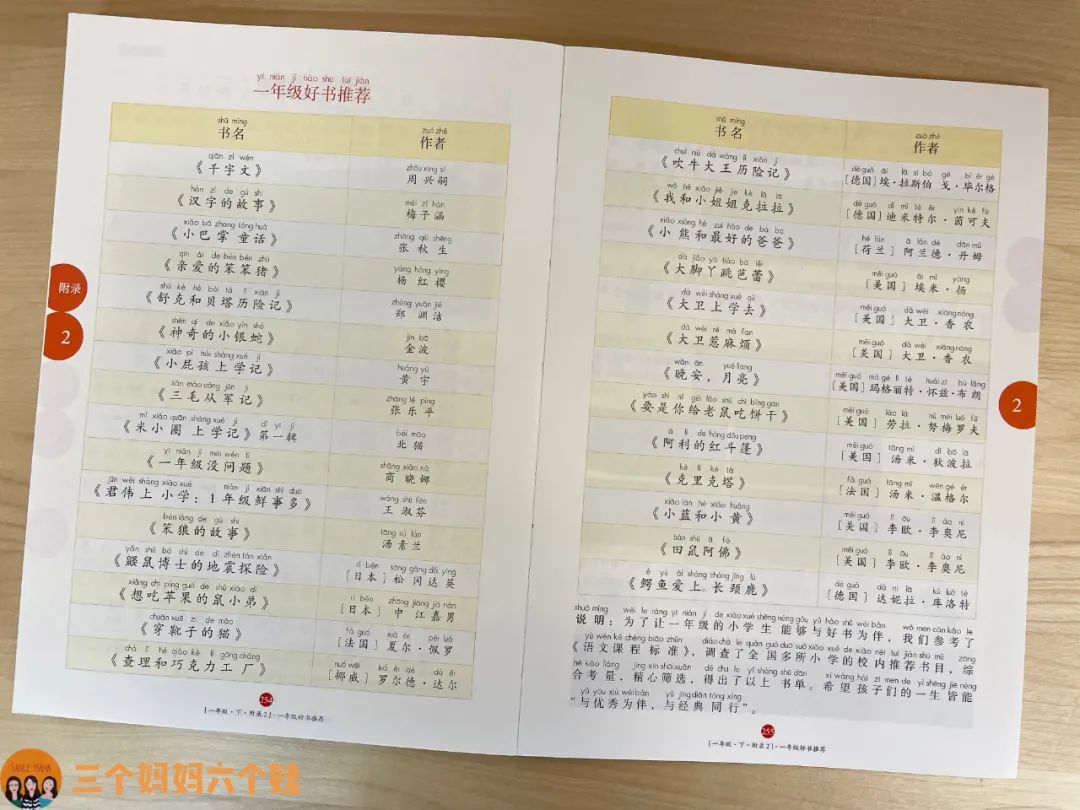 yì nián jí hǎo shū tuī jiàn
一年级好书推荐
shū míng zuò zhě
书名 作者
qiān zì wén zhōu xīng sì
《千字文》 周兴嗣
hàn zì de gù shi méi zǐ hán
《汉字的故事》 梅子涵
xiǎo bā zhang tóng huà zhāng qiū shēng
《小巴掌童话》 张秋生
qīn ài de bèn bèn zhū yáng hóng yīng
《亲爱的笨笨猪》 杨红樱
shū kè hé bèi tǎ lì xiǎn jì zhèng yuān jié
《舒克和贝塔历险记》 郑渊洁
shén qí de xiǎo yín shé jīn bō
《神奇的小银蛇》 金波
xiǎo pì hái shàng xué jì huáng yǔ
《小屁孩上学记》 黄宇
sān máo cóng jūn jì zhāng lè píng
《三毛从军记》 张乐平
mǐ xiǎo quān shàng xué jì dì yī jí běi māo
《米小圈上学记》第一辑 北猫
yì nián jí méi wèn tí shāng xiǎo nà
《一年级没问题》 商晓娜
jūn wěi shàng xiǎo xué nián jí xiān shì duō wáng shū fēn
《君伟上小学：1年级鲜事多》 王淑芬
bèn láng de gù shi tāng sù lán
《笨狼的故事》 汤素兰
yǎn shǔ bó shì de dì zhèn tàn xiǎn rì běn sōng gāng dá yīng
《鼹鼠博士的地震探险》 [日本]松冈达英
xiǎng chī píng guǒ de shǔ xiǎo dì rì běn zhōng jiāng jiā nán
《想吃苹果的鼠小弟》 [日本]中江嘉男
chuān xuē zi de māo fǎ guó xià ěr pèi luó
《穿靴子的猫》 [法国]夏尔·佩罗
chá lǐ hé qiǎo kè lì gōng chǎng nuó wēi luó ěr dé dá ěr
《查理和巧克力工厂》 [挪威]罗尔德·达尔
附录
2
254
[一年级·下·附录2]·一年级好书推荐
shū míng zuò zhě
书名 作者
chuī niú dà wáng lì xiǎn jì dé guó āi lā sī bó gē bì ěr gé
《吹牛大王历险记》 [德国]埃·拉斯伯 戈·毕尔格
wǒ hé xiǎo jiě jie kè lā lā dé guó dí mǐ tè ěr yīn kě fū
《我和小姐姐克拉拉》 [德国]迪米特尔·茵可夫
xiǎo xióng hé zuì hǎo de bà ba hé lán ā lán dé dān mǔ
《小熊和最好的爸爸》 [荷兰]阿兰德·丹姆
dà jiǎo yā tiào bā lěi měi guó āi mǐ yáng
《大脚丫跳芭蕾》 [美国]埃米·扬
dà wèi shàng xué qù měi guó dà wèi xiāng nóng
《大卫上学去》 [美国]大卫·香农
dà wèi rě má fan měi guó dà wèi xiāng nóng
《大卫惹麻烦》 [美国]大卫·香农
wǎn ān yuè liang měi guó mǎ gé lì tè huái zī bù lǎng
《晚安，月亮》 [美国]玛格丽特·怀兹·布朗
yào shi nǐ gěi lǎo shǔ chī bǐng gān měi guó láo lā nǔ méi luó fū
《要是你给老鼠吃饼干》 [美国]劳拉·努梅罗夫
ā lì de hóng dǒu peng měi guó tāng mǐ dí bō lā
《阿利的红斗篷》 [美国]汤米·狄波拉
kè lǐ kè tǎ fǎ guó tāng mǐ wēn gé ěr
《克里克塔》 [法国]汤米·温格尔
xiǎo lán hé xiǎo huáng měi guó lǐ ōu lǐ ào ní
《小蓝和小黄》 [美国]李欧·李奥尼
tián shǔ ā fó měi guó lǐ ōu lǐ ào ní
《田鼠阿佛》 [美国]李欧·李奥尼
è yú ài shàng cháng jǐng lù dé guó dá nī lā kù luò tè
《鳄鱼爱上长颈鹿》 [德国]达妮拉·库洛特
shuō míng wèi le ràng yì nián jí de xiǎo xué shēng néng gòu yǔ hǎo shū wéi bàn wǒ men cān kǎo le
说明：为了让一年级的小学生能够与好书为伴，我们参考了
yǔ wén kè chéng biāo zhǔn diào chá le quán guó duō suǒ xiǎo xué de xiào nèi tuī jiàn shū mù zōng
《语文课程标准》，调查了全国多所小学的校内推荐书目，综
hé kǎo liáng jīng xīn shāi xuǎn dé chū le yǐ shàng shū dān xī wàng hái zi men de yì shēng jiē néng
合考量，精心筛选，得出了以上书单。希望孩子们的一生皆能
yǔ yōu xiù wéi bàn yǔ jīng diǎn tóng xíng
“与优秀为伴，与经典同行”。
2
255
[一年级·下·附录2]·一年级好书推荐
三个妈妈六个娃